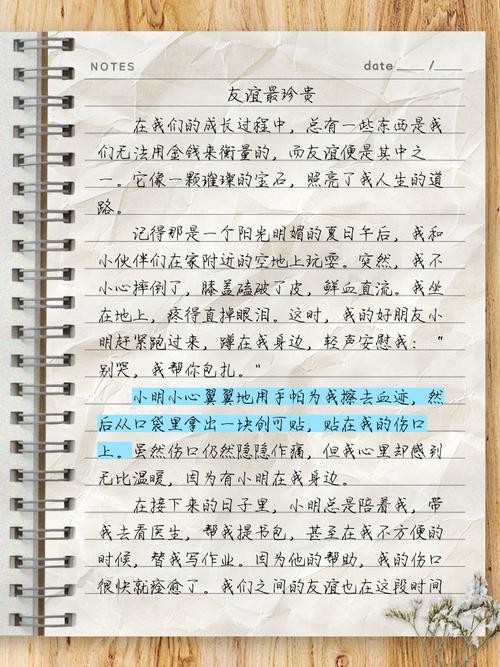 NOTES date / 
友谊最珍贵
在我们的成长过程中，总有一些东西是我
们无法用金钱来衡量的，而友谊便是其中之
一。它像一颗璀璨的宝石，照亮了我人生的道
路。
记得那是一个阳光明媚的夏日午后，我和
小伙伴们在家附近的空地上玩耍。突然，我不
小心摔倒了，膝盖磕破了皮，鲜血直流。我坐
在地上，疼得直掉眼泪。这时，我的好朋友小
明赶紧跑过来，蹲在我身边，轻声安慰我：“
别哭，我帮你包扎。”
小明小心翼翼地用手帕为我擦去血迹，然
后从口袋里拿出一块创可贴，贴在我的伤口
上。虽然伤口仍然隐隐作痛，但我心里却感到
无比温暖，因为有小明在我身边。
在接下来的日子里，小明总是陪着我，带
我去看医生，帮我提书包，甚至在我不方便的
时候，替我写作业。因为他的帮助，我的伤口
很快就痊愈了。我们之间的友谊也在这段时间